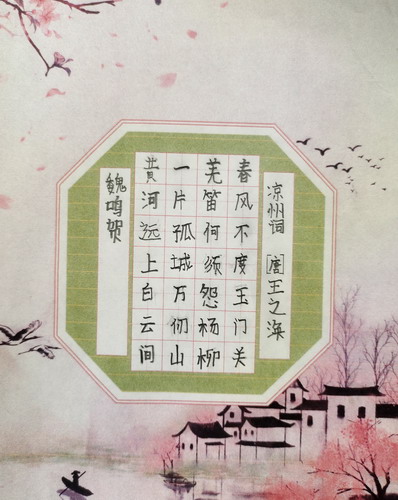 凉州词 [唐]王之海
黄河远上白云间
一片孤城万们山
芜笛何须怨杨柳
春风不度玉门关
魏鸣贺